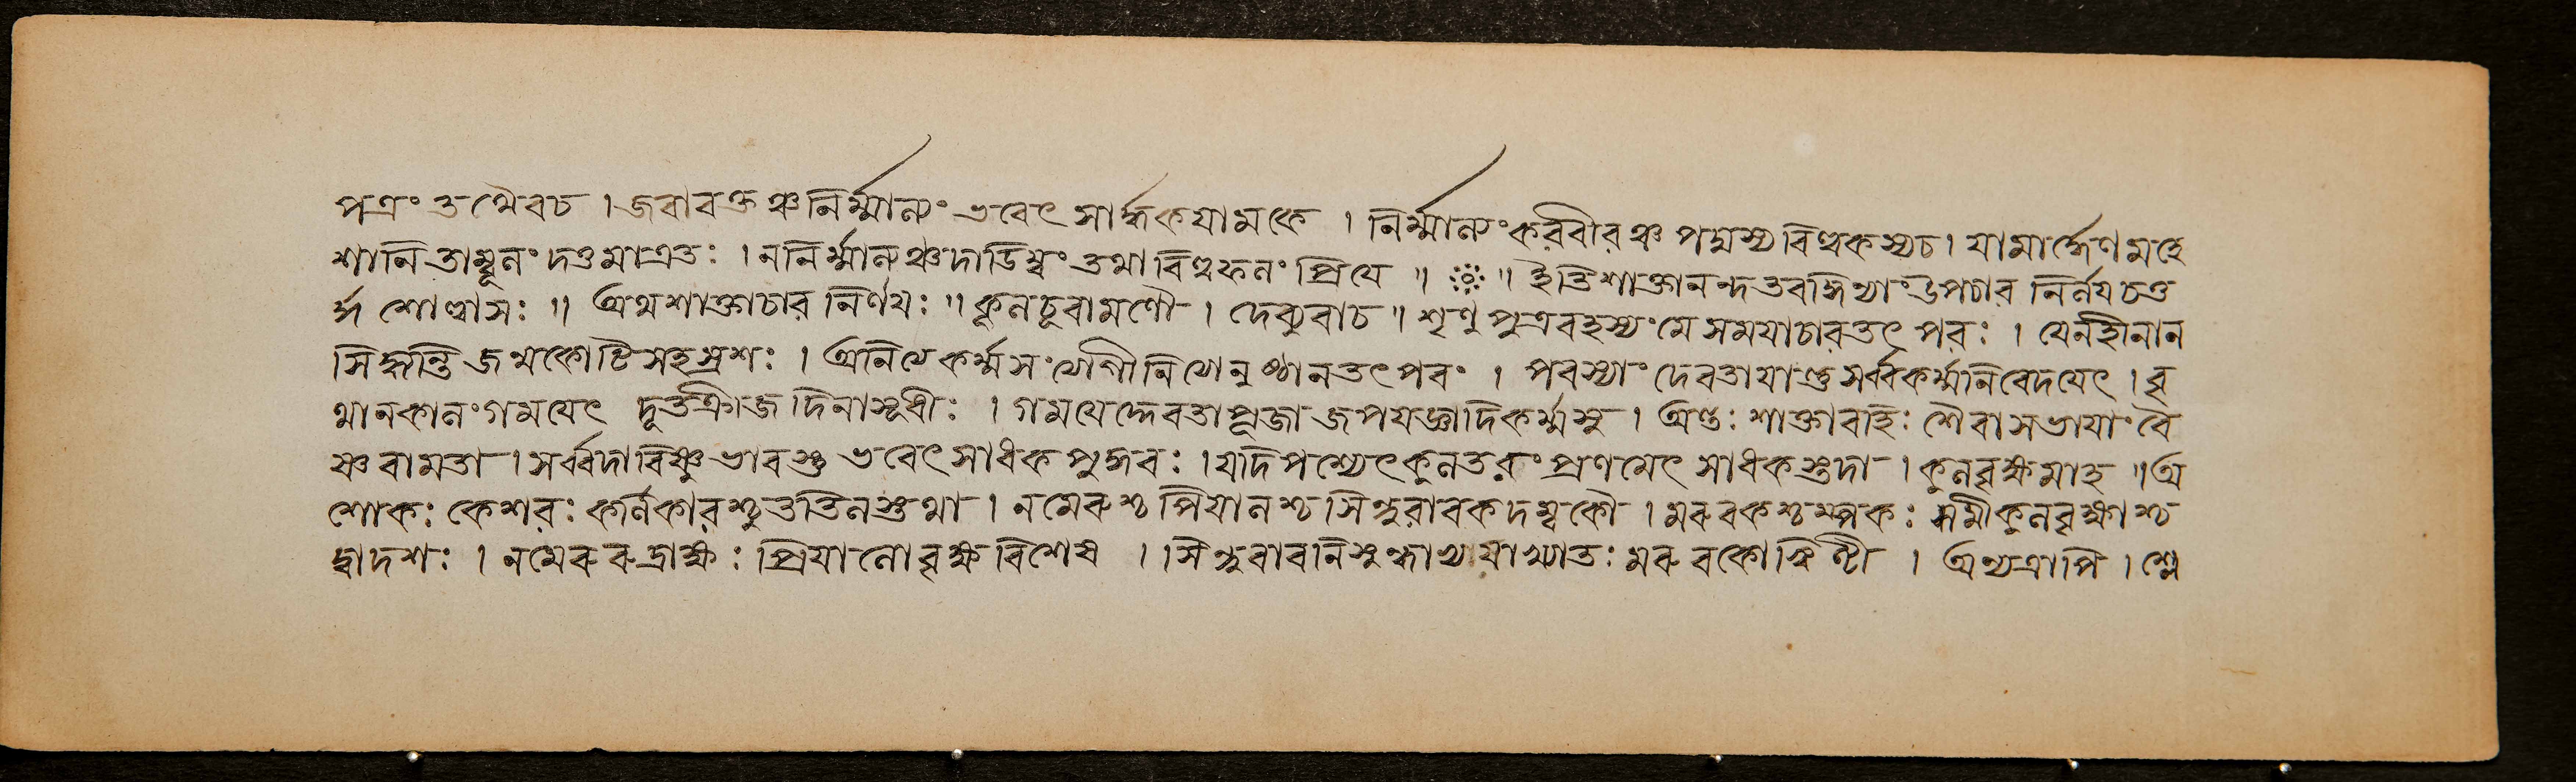 পত্রং তথৈবচ । জবাবক্তঞ্চনির্ম্মাল্যং ভবেৎ সার্দ্ধকযামকে । নির্ম্মাল্যংকরবীরঞ্চ পদ্মস্যবিল্বকস্যচ । যামার্দ্ধেণমহে
শানিতাম্বূলং দণ্ডমাত্রতঃ । ননির্ম্মাল্যঞ্চদাডিম্বং তথাবিল্বফলং প্রিযে ॥ ॥ ইতিশাক্তানন্দতরঙ্গিণ্যাং উপচার নির্নযচতু
র্দ্দশোল্লাসঃ ॥ অথশাক্তাচার নির্ণযঃ ॥ কুলচূবামণৌ । দেব্যুবাচ ॥ শৃণু পুত্ররহস্যংমে সমযাচারতৎপরঃ । যেনহীনান
সিদ্ধন্তি জন্মকোটিসহস্রশঃ । অনিত্যেকর্ম্মসংযোগীনিত্যেনুষ্ঠানতৎপরং । পরস্যাং দেবতাযান্তুসর্ব্বকর্ম্মনিবেদযেৎ । বৃ
থানকালংগমযেৎ দ্যূতক্রীজাদিনাসুধীঃ । গমযেদ্দেবতাপূজা জপযজ্ঞাদিকর্ম্মসু । অন্তঃশাক্তাবহিঃ শৈবাসভাযাং বৈ
ষ্ণবামতা । সর্ব্বদাবিষ্ণুভাবস্তু ভবেৎসাধকপুঙ্গবঃ । যদিপশ্যেৎকুলতরুংপ্রণমেৎ সাধকস্তুদা । কুলবৃক্ষমাহ ॥ অ
শোকঃ কেশরঃ কর্নিকারশ্চুততিলস্তুথা । নমেরুশ্চ পিযালশ্চ সিন্ধুরাবকদম্বকৌ । মরুবকশ্চম্পকঃ সমীকুলবৃক্ষাশ্চ
দ্বাদশঃ । নমেরুরুদ্রাক্ষঃ প্রিযালোবৃক্ষবিশেষ । সিন্ধুবাবনিসুন্ধাখ্যযাখ্যাতঃ মরুবকোঝিণ্টী । অন্যত্রাপি । শ্লে